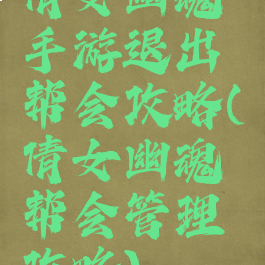 倩女幽魂
手游退出
帮会攻略(
倩女幽魂
帮会管理
攻略)